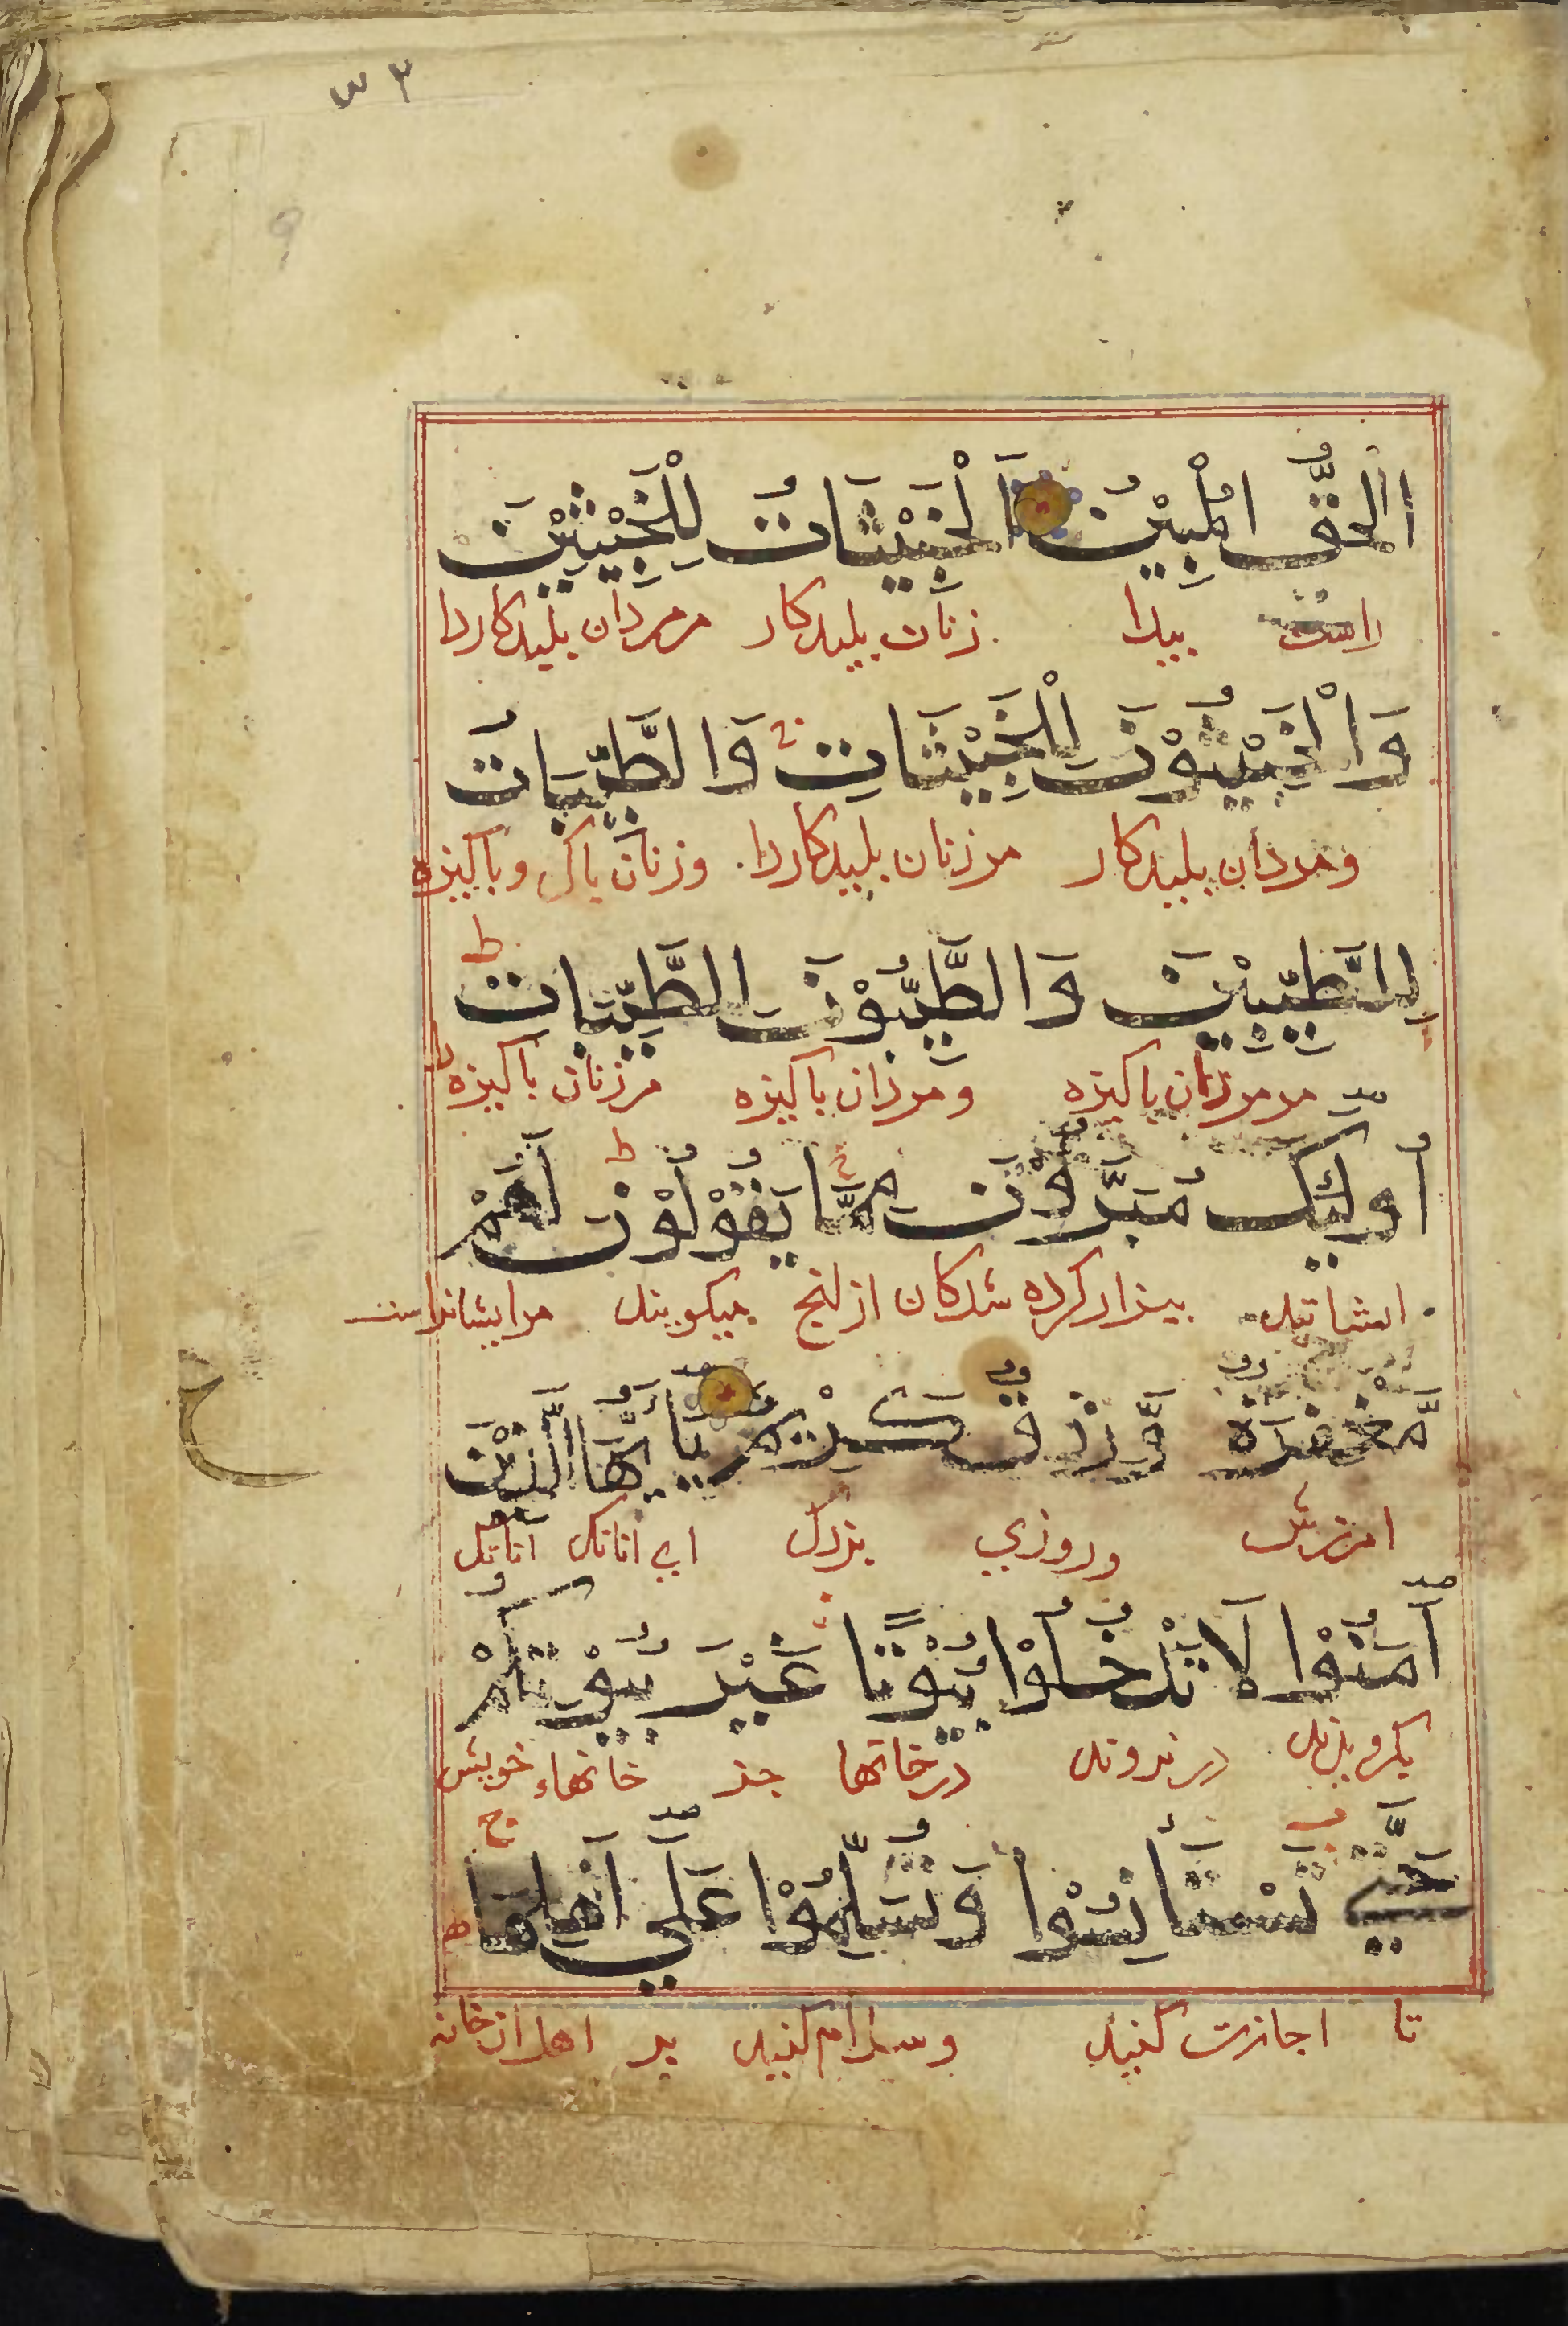 ۳۲
الْحَقُّ الْمُبِيْنُ اَلْخَبِيْثَاتُ لِلْخَبِيْثِيْنَ
راست پیدا زنان پلیدکار مرمردان پلیدکاررا
وَالْخَبِيْثُوْنَ لِلْخَبِيْثَاتِ وَالطَّيِّبَاتُ
ومردان پلیدکار مرزنان پلیدکاررا وزنان پاک وپاکیزه
لِلطَّيِّبِيْنَ وَالطَّيِّبُوْنَ لِلطَّيِّبَاتِ ط
مرمردان پاکیزه ومردان پاکیزه مرزنان پاکیزه
أُولَٰئِكَ مُبَرَّؤُوْنَ مِمَّا يَقُوْلُوْنَ ط لَهُمْ
ایشانند بیزارکرده شدکان ازانج میکویند مرایشانراست
مَّغْفِرَةٌ وَّرِزْقٌ كَرِيْمٌ يَا أَيُّهَا الَّذِيْنَ
امرزش وروزی بزرک ای انانک انانک
آمَنُوْا لَا تَدْخُلُوْا بُيُوْتًا غَيْرَ بُيُوْتِكُمْ
بکرویدند درنروند درخانها جز خانهاء خویش
حَتَّىٰ تَسْتَأْنِسُوْا وَتُسَلِّمُوْا عَلَىٰ أَهْلِهَا
تا اجازت کنید وسلام کنید بر اهل ان خانه